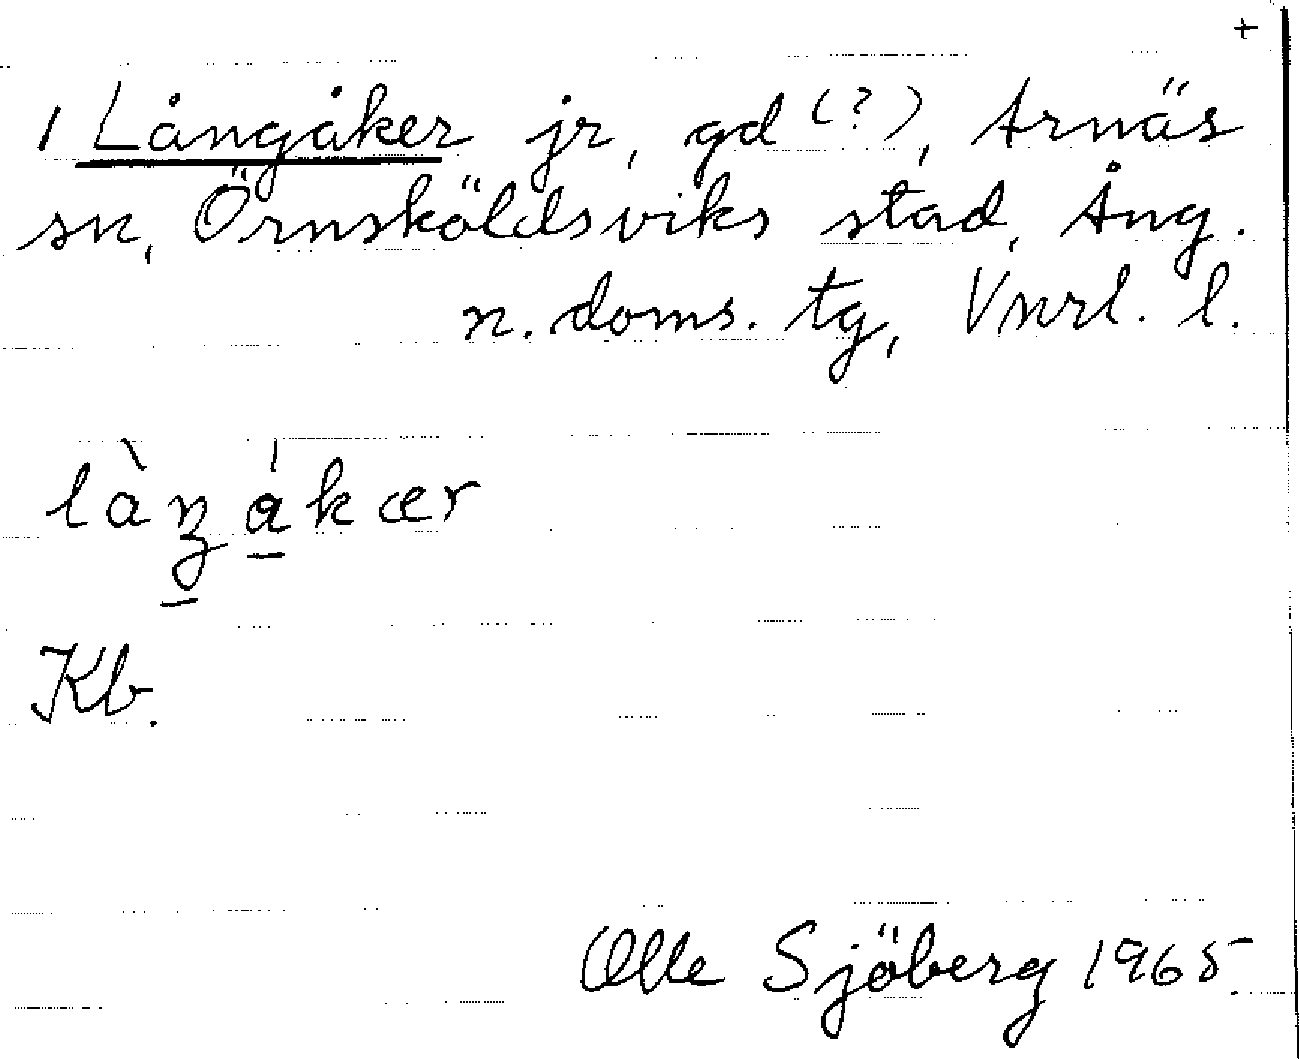 +
1 Långåker jr, gd (?), Arnäs
sn, Örnsköldsviks stad, Ång.
n. doms. tg, Vnrl. l.
Kb.
Olle Sjöberg 1965